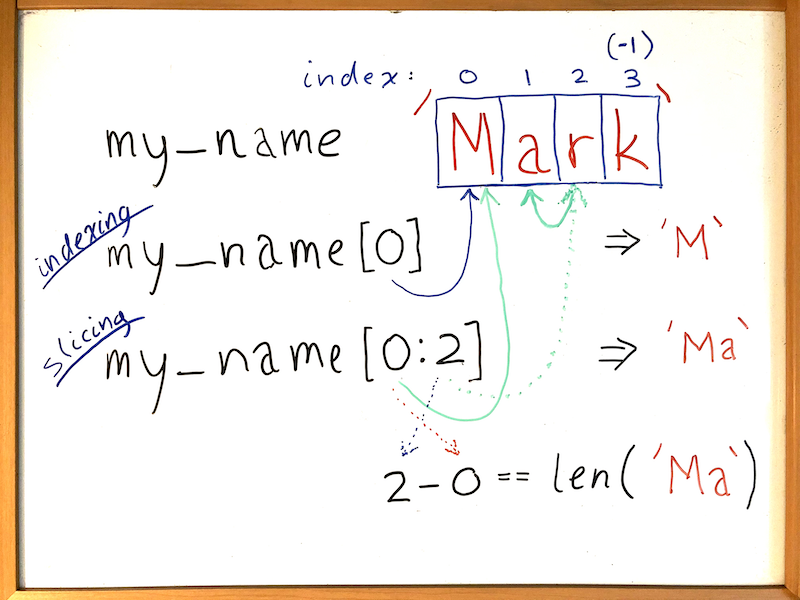 (-1)
index: 0 1 2 3
my_name 'Mark'
indexing
my_name[0] ⇒ 'M'
slicing
my_name[0:2] ⇒ 'Ma'
2-0 == len('Ma')